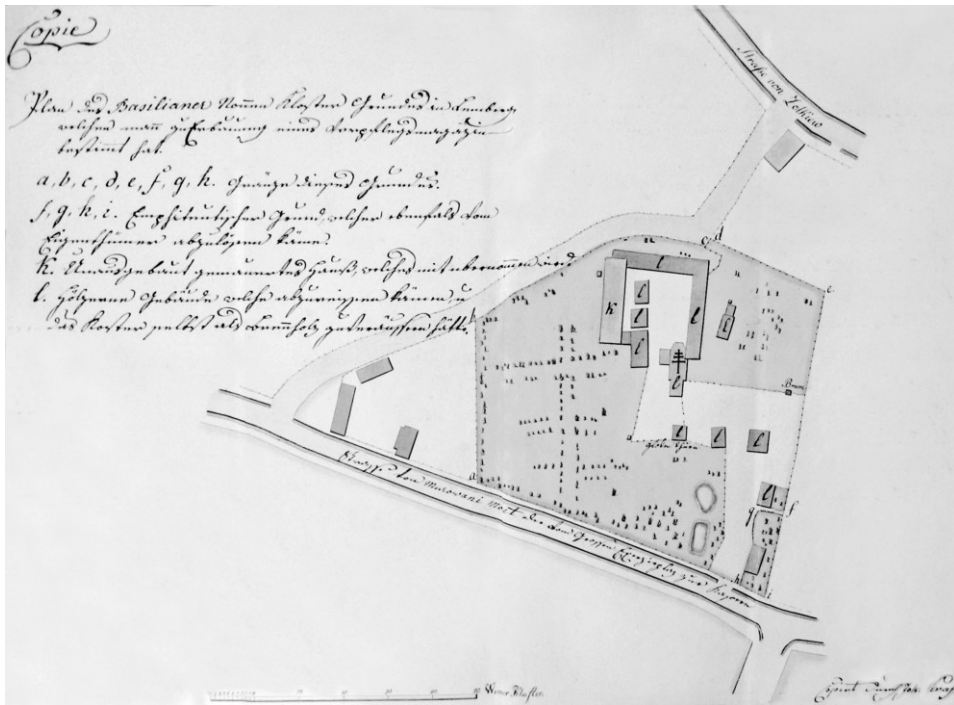 Copie
Plan des Basilianer Nonnen Kloster Grundes in Lemberg
welchen mann zu Erbauung eines Verpflegsmagazin
bestimmt hat.
a, b, c, d, e, f, g, h. Gränze dieses Grundes.
f, g, h, i. Emphiteutischer Grund, welcher ebenfals vom
Eigenthümer abzulösen käme.
k. Unausgebaut gemauertes Hauß, welches mit übernommen wird
l. Hölzerne Gebäude welche abzureissen kämen u
das Kloster selbst als Brennholz zu veräussern hätte.
Straße von Zolkiew
c d
e
b
l
k
l
l
l
l
l
l
Brun
l
l
l
gloken thurn
l
a
g
f
h
i
Strasse von Murowani Most der vom Grossen Exerzierplaz zur
Wiener Klafter
Copirt durch